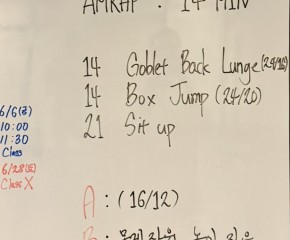 AMRAP : 14 MIN
14 Goblet Back Lunge (24/16)
14 Box Jump (24/20)
21 Sit up
6/6(금)
10:00
11:30
Class
6/28(토)
Class X
A : (16/12)
B :